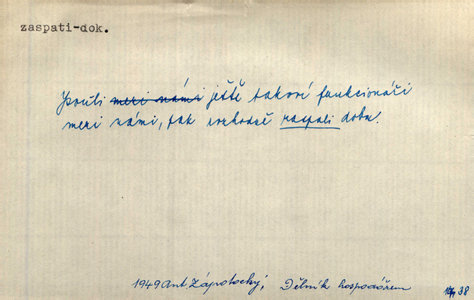 zaspati-dok.
Jsou-li mezi námi ještě takoví funkcionáři
mezi námi, tak rozhodně zaspali dobu.
1949 Ant Zápotocký, Dělník hospodářem
38